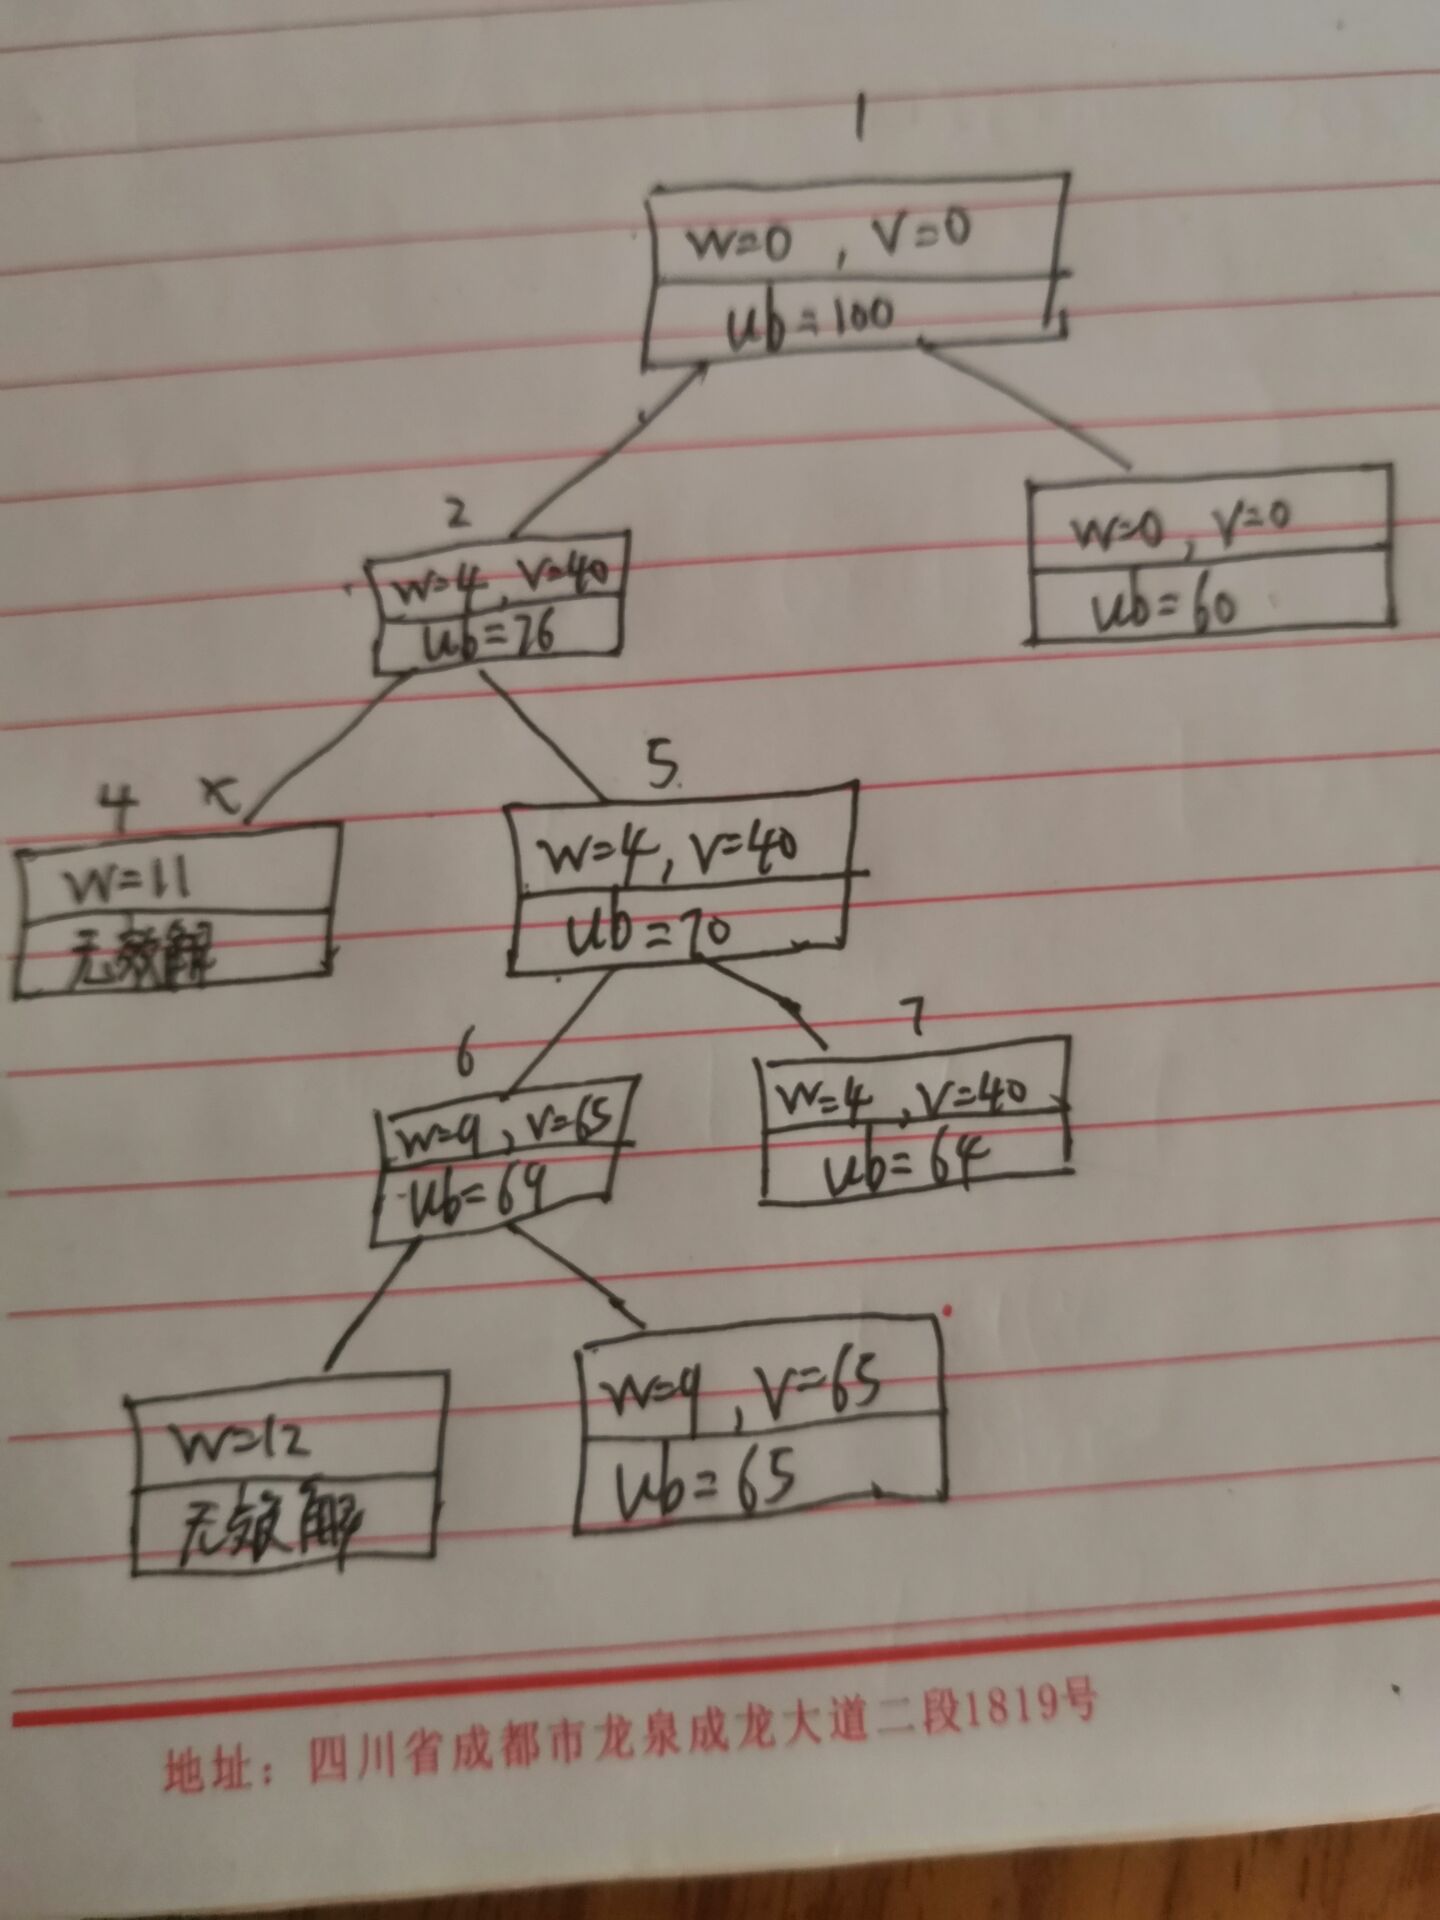 1
w=0 , v=0
ub=100
2
w=4 , v=40
ub=76
w=0 , v=0
ub=60
4 ×
w=11
无效解
5
w=4, v=40
ub=70
6
w=9 , v=65
ub=69
7
w=4 , v=40
ub=64
w=12
无效解
w=9 , v=65
ub=65
地址：四川省成都市龙泉成龙大道二段1819号